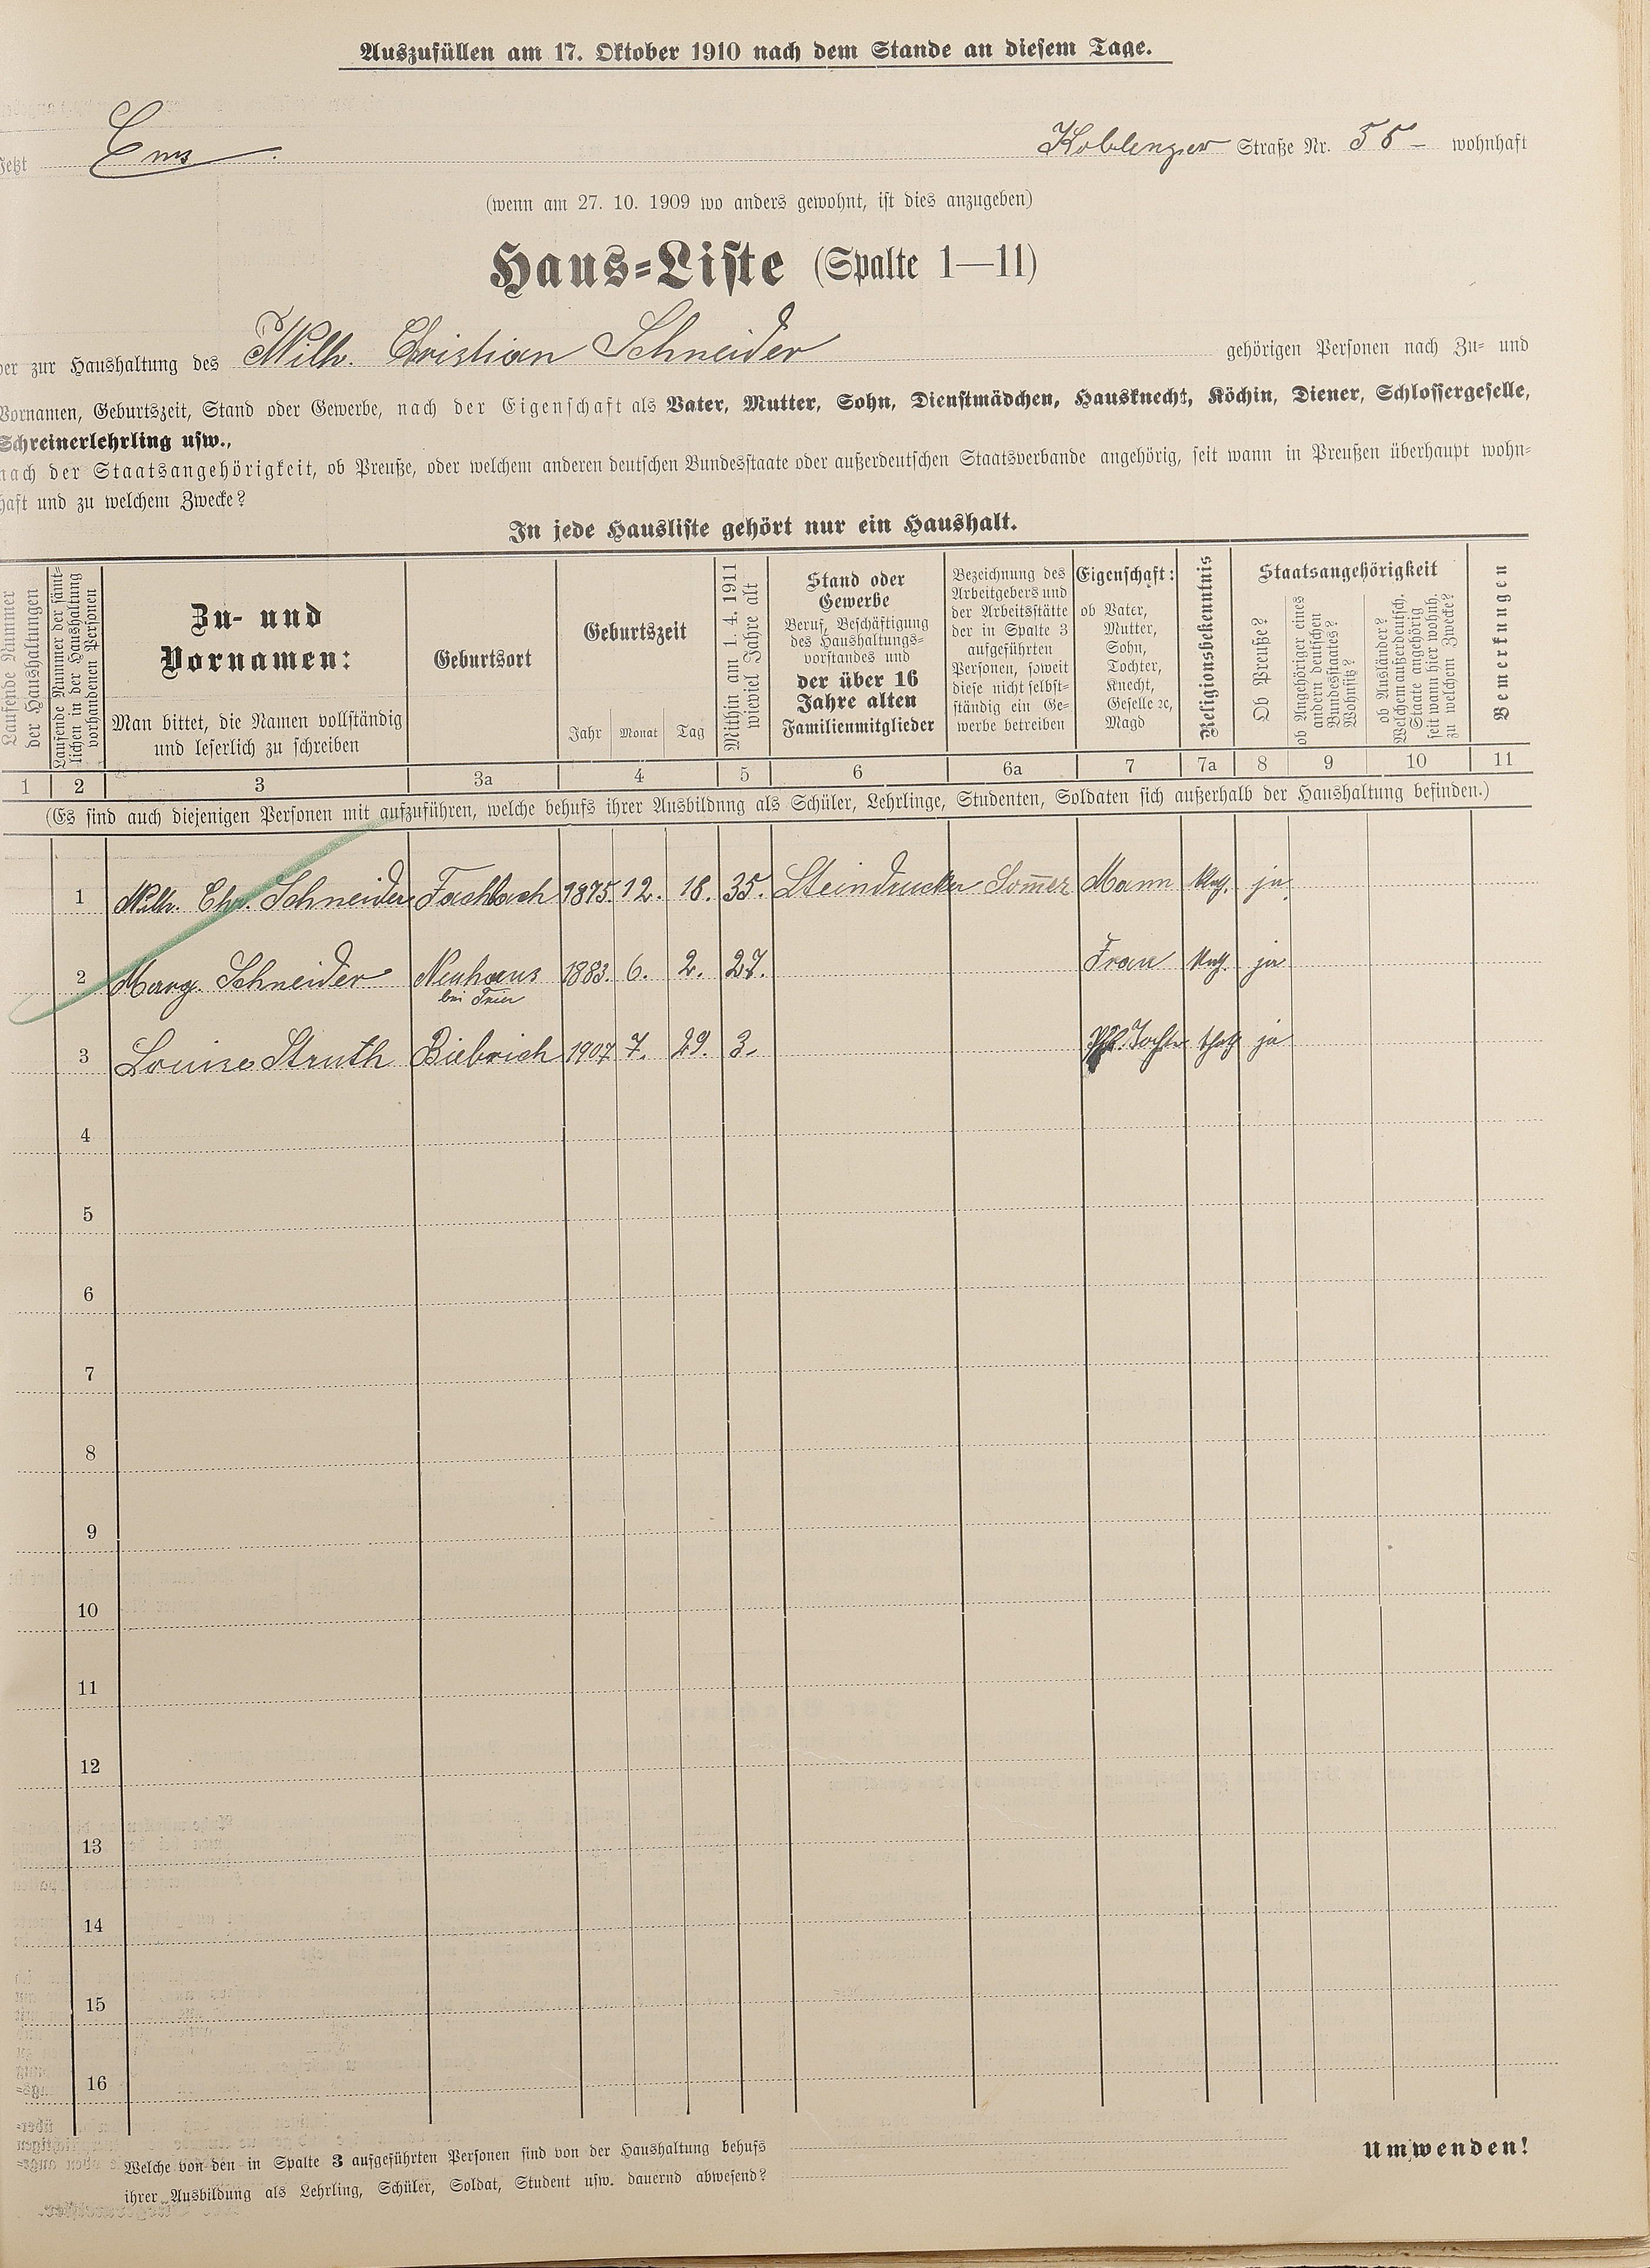 Auszufüllen am 17. Oktober 1910 nach dem Stande an diesem Tage.
Jetzt Ems. Koblenzer Straße Nr. 55 wohnhaft
(wenn am 27. 10. 1909 wo anders gewohnt, ist dies anzugeben)
Haus-Liste (Spalte 1—11)
der zur Haushaltung des Wilh. Christian Schneider gehörigen Personen nach Zu- und
Vornamen, Geburtszeit, Stand oder Gewerbe, nach der Eigenschaft als Vater, Mutter, Sohn, Dienstmädchen, Hausknecht, Köchin, Diener, Schlossergeselle,
Schreinerlehrling usw.,
nach der Staatsangehörigkeit, ob Preuße, oder welchem anderen deutschen Bundesstaate oder außerdeutschen Staatsverbande angehörig, seit wann in Preußen überhaupt wohn-
haft und zu welchem Zwecke?
In jede Hausliste gehört nur ein Haushalt.
Laufende Nummer
der Haushaltungen
Laufende Nummer der sämt-
lichen in der Haushaltung
vorhandenen Personen
Zu- und
Vornamen:
Man bittet, die Namen vollständig
und leserlich zu schreiben
Geburtsort
Geburtszeit
Jahr Monat Tag
Mithin am 1. 4. 1911
wieviel Jahre alt
Stand oder
Gewerbe
Beruf, Beschäftigung
des Haushaltungs-
vorstandes und
der über 16
Jahre alten
Familienmitglieder
Bezeichnung des
Arbeitgebers und
der Arbeitsstätte
der in Spalte 3
aufgeführten
Personen, soweit
diese nicht selbst-
ständig ein Ge-
werbe betreiben
Eigenschaft:
ob Vater,
Mutter,
Sohn,
Tochter,
Knecht,
Geselle ꝛc,
Magd
Religionsbekenntnis
Staatsangehörigkeit
Ob Preuße?
ob Angehöriger eines
andern deutschen
Bundesstaates?
Wohnsitz?
ob Ausländer?
Welchem außerdeutsch.
Staate angehörig
seit wann hier wohnh.
zu welchem Zwecke?
Bemerkungen
1 2 3 3a 4 5 6 6a 7 7a 8 9 10 11
(Es sind auch diejenigen Personen mit aufzuführen, welche behufs ihrer Ausbildung als Schüler, Lehrlinge, Studenten, Soldaten sich außerhalb der Haushaltung befinden.)
1 Wilh. Chr. Schneider Fachbach 1875. 12. 18. 35. Steindrucker Som̅er Mann ja.
2 Marg. Schneider Neuhaus 1883. 6. 2. 27. Frau ja
bei Trier
3 Louise Struth Biebrich 1907 7. 29. 3. Tochter kath ja
4
5
6
7
8
9
10
11
12
13
14
15
16
Welche von den in Spalte 3 aufgeführten Personen sind von der Haushaltung behufs
ihrer Ausbildung als Lehrling, Schüler, Soldat, Student usw. dauernd abwesend?
Umwenden!